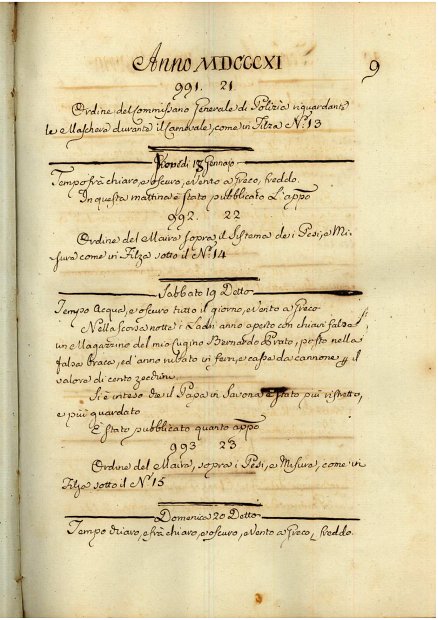 Anno MDCCCXI
9
991. 21.
Ordine del Commissario Generale di Polizia riguardante
le Maschere durante il Carnevale, come in Filza N.º 13
Giovedì 18 Gennaio
Tempo frà chiaro, e oscuro, e Vento a Greco, freddo.
In questa mattina è stato pubblicato L'appō
992. 22
Ordine del Maira sopra il Sistema de i Pesi, e Mi-
sura come in Filza sotto il N.º 14
Sabbato 19 Detto
Tempo Acqua, e oscuro tutto il giorno, e Vento a Greco
Nella scorsa notte i Ladri anno aperto con chiavi falsa
un Magazzino del mio Cugino Bernardo Prato, posto nella
falsa Braca, ed anno rubato in ferri, e cassa da cannone p il
valora di cento zecchini.
Si è inteso che il Papa in Savona è stato più ristretto,
e più guardato
È stato pubblicato quanto appō
993 23
Ordine del Maira, sopra i Pesi, e Misura, come in
Filza sotto il N.º 15
Domenica 20 Detto
Tempo chiaro, e frà chiaro, e oscuro, e Vento a Greco, freddo.